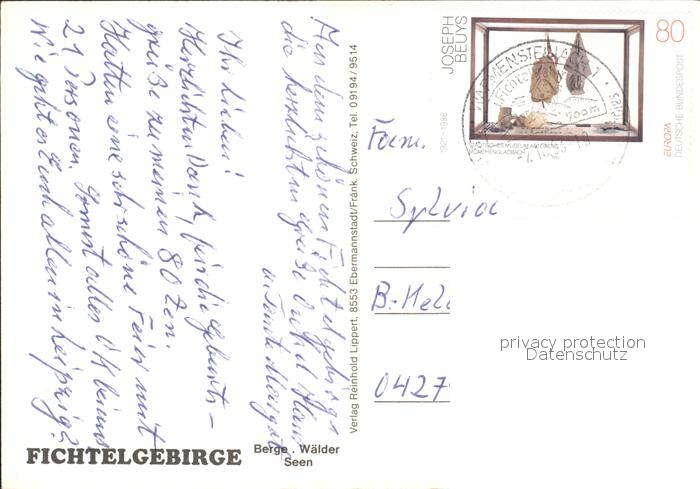 Ihr Lieben!
Herzlichen Dank, für die Geburts-
grüße zu meinem 80zen.
Hatten eine sehr schöne Feier mit
21 Personen. Sonst alles OK bei uns
Wie geht es Euch allen in Leipzig?
Aus dem schönen Fichtelgebirge
die herzlichsten Grüße Onkel
u. Tante
FICHTELGEBIRGE
Berge . Wälder
Seen
Verlag Reinhold Lippert, 8553 Ebermannstadt/Fränk. Schweiz, Tel. 09194/9514
JOSEPH
BEUYS
1921-1986
80
DEUTSCHE BUNDESPOST
EUROPA
STÄDTISCHES MUSEUM ABTEIBERG
MÖNCHENGLADBACH
WARMENSTEINACH
Fam.
Sylvia
B.-Hel
0427
privacy protection
Datenschutz